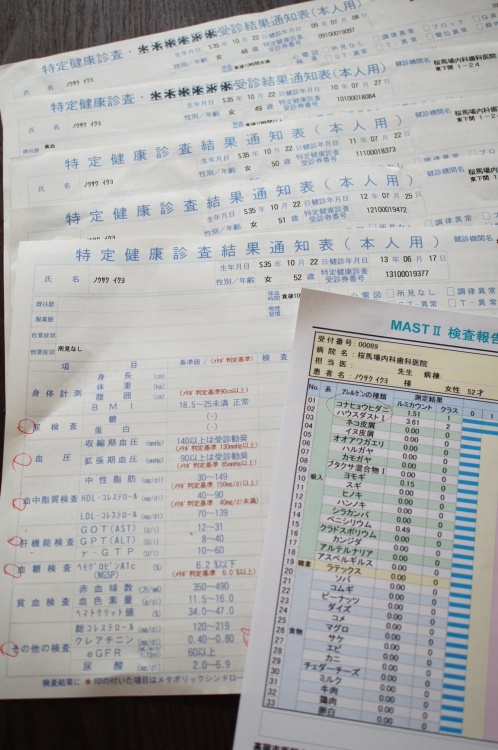 特定健康診査・******受診結果通知表(本人用)
氏 名 ノウサク イクヨ
生年月日 S35 年 10 月 22 日 健診年月日 09 年 07 月 08 日
性別/年齢 女 48 歳 特定健康診査受診券番号
特定健康診査・******受診結果通知表(本人用)
氏 名 ノウサク イクヨ
性別/年齢 女 49 歳 特定健康診査受診券番号 10100018084
健診機関名 桜馬場内科歯科医院
東下関 1-24
特定健康診査結果通知表(本人用)
生年月日 S35 年 10 月 22 日 健診年月日 11 年 07 月 22 日
性別/年齢 女 50 歳 特定健康診査受診券番号 11100018373
氏 名 ノウサク イクヨ
特定健康診査結果通知表(本人用)
生年月日 S35 年 10 月 22 日 健診年月日 12 年 07 月 25 日
性別/年齢 女 51 歳 特定健康診査受診券番号 12100019472
特定健康診査結果通知表(本人用)
生年月日 S35 年 10 月 22 日 健診年月日 13 年 06 月 17 日
氏 名 ノウサク イクヨ
性別/年齢 女 52 歳 特定健康診査受診券番号 13100019377
既往歴
服薬歴
自覚症状
他覚症状 所見なし
項 目 基準値/(メタボ判定基準) 検 査
身体計測
身 長 (cm)
体 重 (kg)
腹 囲 (cm) (メタボ判定基準90cm以上)
BMI 18.5~25未満 正常
尿検査
糖 (-)
蛋 白 (-)
血 圧
収縮期血圧 (mmHg) 140以上は受診勧奨
(メタボ判定基準 130mmHg以上)
拡張期血圧 (mmHg) 90以上は受診勧奨
(メタボ判定基準 85mmHg以上)
血中脂質検査
中性脂肪 (mg/dl) 30~149
(メタボ判定基準 150mg/dl以上)
HDL-コレステロール (mg/dl) 40~90
(メタボ判定基準 40mg/dl未満)
LDL-コレステロール (mg/dl) 70~139
肝機能検査
GOT(AST) (U/l) 12~31
GPT(ALT) (U/l) 8~40
γ-GTP (U/l) 10~60
血糖検査 ヘモグロビンA1c (NGSP) 6.2 %以下
(メタボ判定基準 6.0 %以上)
貧血検査
赤血球数 (万/㎣) 350~490
血色素量 (g/dl) 11.5~16.0
ヘマトクリット値 (%) 34.0~47.0
その他の検査
総コレステロール (mg/dl) 120~219
クレアチニン (mg/dl) 0.40~0.80
eGFR 60以上
尿 酸 (mg/dl) 2.0~6.9
検査結果に * 印の付いた項目はメタボリックシンドロー
MASTⅡ 検査報告
受付番号: 00089
病 院 名: 桜馬場内科歯科医院
担 当 医: 先生 病棟:
患 者 名: ノウサク イクヨ 様 女性 52才
No. 系 アレルゲンの種類 測定結果
ルミカウント クラス 0 1
01 コナヒョウヒダニ 1.51 1
02 ハウスダストⅠ 3.61 2
03 ネコ皮屑 0.00 0
04 イヌ皮屑 0.00 0
05 オオアワガエリ 0.00 0
06 ハルガヤ 0.00 0
07 カモガヤ 0.00 0
08 ブタクサ混合物Ⅰ 0.00 0
09 ヨモギ 0.00 0
10 吸入 スギ 0.15 0
11 ヒノキ 0.00 0
12 ハンノキ 0.00 0
13 シラカンバ 0.00 0
14 ペニシリウム 0.00 0
15 クラドスポリウム 0.49 0
16 カンジダ 0.00 0
17 アルテルナリア 0.00 0
18 アスペルギルス 0.00 0
19 職業 ラテックス 0.00 0
20 ソバ 0.00 0
21 コムギ 0.00 0
22 ピーナッツ 0.00 0
23 ダイズ 0.00 0
24 コメ 0.00 0
25 マグロ 0.00 0
26 食物 サケ 0.00 0
27 エビ 0.00 0
28 カニ 0.00 0
29 チェダーチーズ 0.00 0
30 ミルク 0.00 0
31 牛肉 0.00 0
32 鶏肉 0.00 0
33 卵白 0.00 0